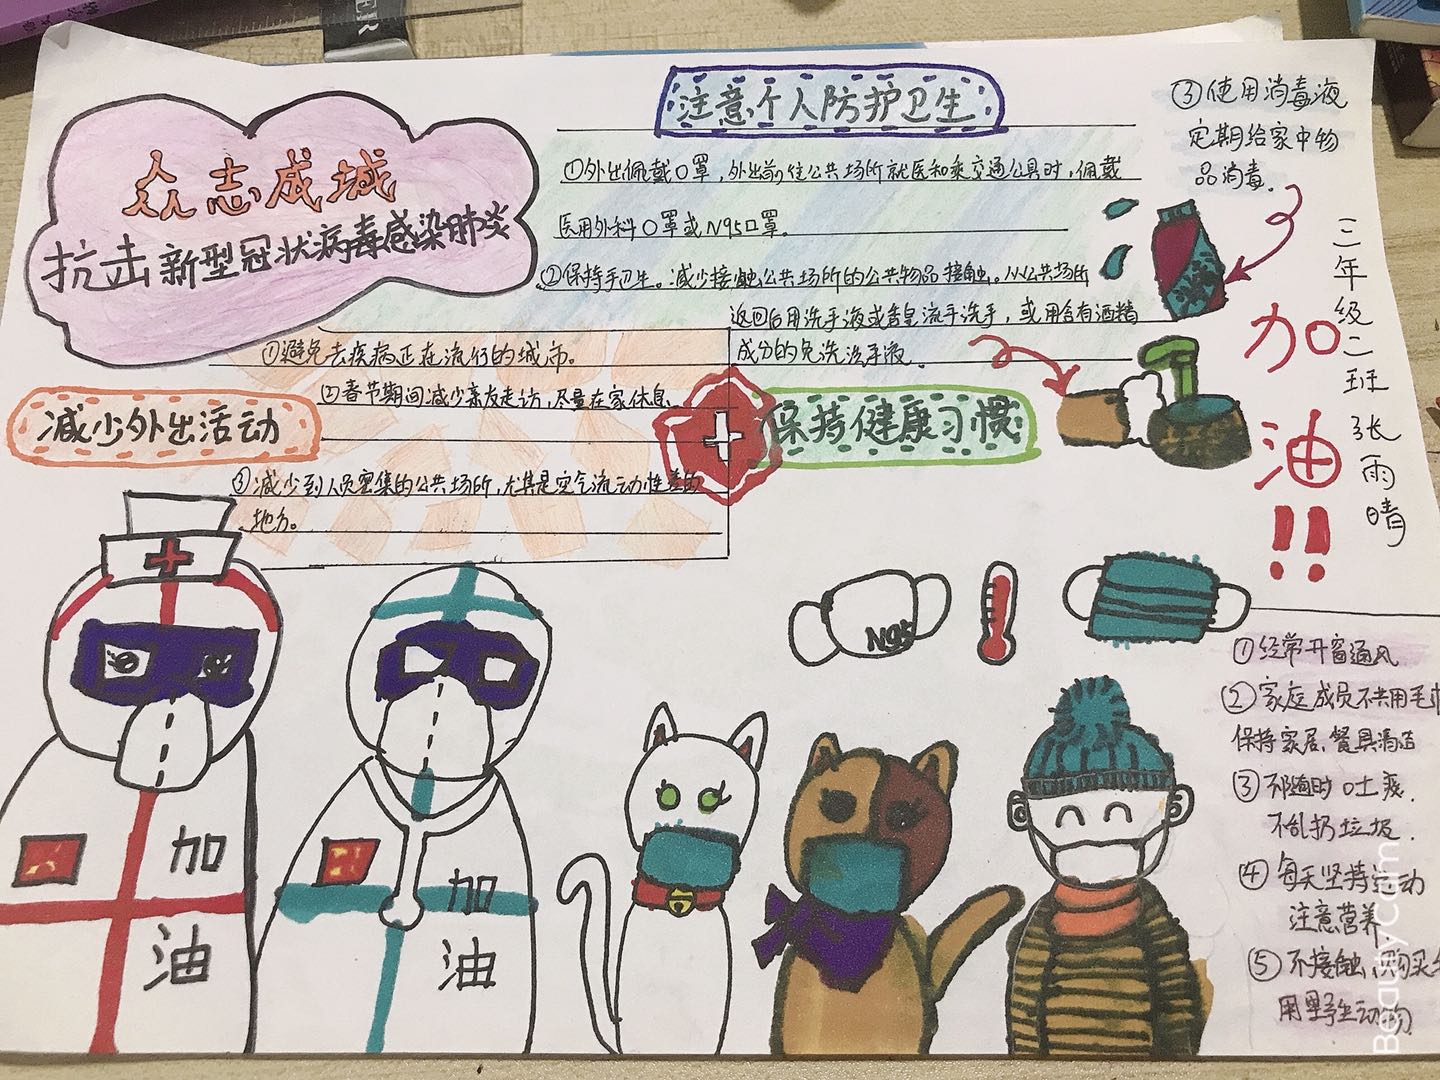 众志成城
抗击新型冠状病毒感染肺炎
注意个人防护卫生
①外出佩戴口罩,外出前往公共场所就医和乘交通公具时,佩戴
医用外科口罩或N95口罩。
②保持手卫生。减少接触公共场所的公共物品接触。从公共场所
返回后用洗手液或香皂流手洗手,或用含有酒精
成分的免洗洗手液.
③使用消毒液
定期给家中物
品消毒.
三年级二班 张雨晴
加油!!
减少外出活动
①避免去疾病正在流行的城市。
②春节期间减少亲友走访,尽量在家休息
③减少到人员密集的公共场所,尤其是空气流动性差的
地方。
保持健康习惯
N95
①经常开窗通风
②家庭成员不共用毛巾
保持家居、餐具清洁
③不随时口土痰.
不乱扔垃圾.
④每天坚持运动
注意营养
⑤不接触、购买
用野生动物
加
油
加
油
BeautyCam